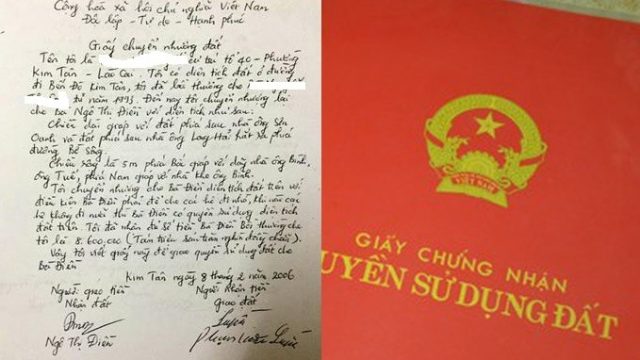 Cộng hòa xã hội chủ nghĩa Việt Nam
Độc lập - Tự do - Hạnh phúc
Giấy chuyển nhượng đất
Tên tôi là trú tổ 40 - Phường
Kim Tân - Lào Cai. Tôi có diện tích đất ở đường
đi Bến Đò Kim Tân, tôi đã bồi thường cho
từ năm 1993. Đến nay tôi chuyển nhượng lại
cho bà Ngô Thị Điền với diện tích như sau:
Chiều dài giáp với đất phía sau nhà ông
Oanh và đất phía sau nhà ông Long Hải phía
đường Bờ sông.
Chiều rộng là 5m phía Bắc giáp với dãy nhà ông Bình,
ông Tuế, phía Nam giáp với nhà kho ông Bình.
Tôi chuyển nhượng cho Bà Điền diện tích đất trên với
điều kiện Bà Điền phải để cho cái hộ đi nhờ, khi nào cái
hộ không đi nữa thì Bà Điền có quyền sử dụng diện tích
đất trên. Tôi đã nhận đủ số tiền Bà Điền Bồi thường cho
tôi là 8.600.000 (Tám triệu sáu trăm nghìn đồng chẵn).
Vậy tôi viết giấy này để giao quyền sử dụng đất cho
Bà Điền
Kim Tân ngày 8 tháng 2 năm 2006
Người giao tiền Người Nhận tiền
Nhận đất Giao đất
Ngô Thị Điền
VIỆT NAM
GIẤY CHỨNG NHẬN
UYỀN SỬ DỤNG ĐẤT